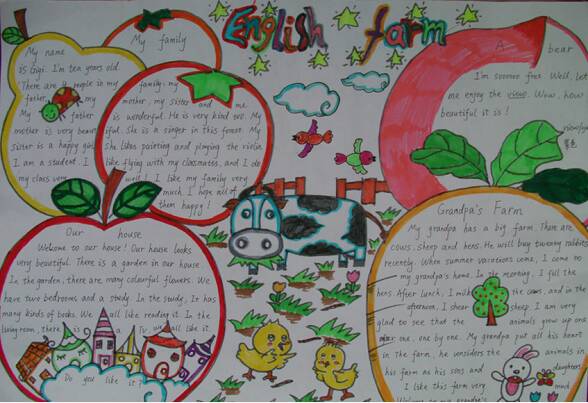 English farm
My family
My name
is Gigi. I'm ten years old.
There are 4 people in my family: my
father, my mother, my sister and me
My father is wonderful. He is very kind too. My
mother is very beautiful. She is a singer in this forest. My
sister is a happy girl. She likes painting and playing the violin
I am a student. I like flying with my classmates, and I do
my class very well! I like my family very
much. I hope all of
them happy!
A bear
I'm sooooo free. Well, let
me enjoy the view. Wow, how
beautiful it is!
景色
Our house
Welcome to our house! Our house looks
very beautiful. There is a garden in our house.
In the garden, there are many colourful flowers. We
have two bedrooms and a study. In the study, It has
many kinds of books. We all like reading it. In the
living room, there is a all like it.
Do you like it?
Grandpa's Farm
My grandpa has a big farm. There are
cows, sheep and hens. He will buy twenty rabbits
recently. When summer vacations come, I come to
my grandpa's home. In the morning, I fill the
hens. After lunch, I milk the cows, and in the
afternoon, I shear sheep. I am very
glad to see that the animals grow up one
one by one. My grandpa put all his heart
in the farm, he considers the animals in
his farm as his sons and daughters
I like this farm very much
Welcome to my grandpa's